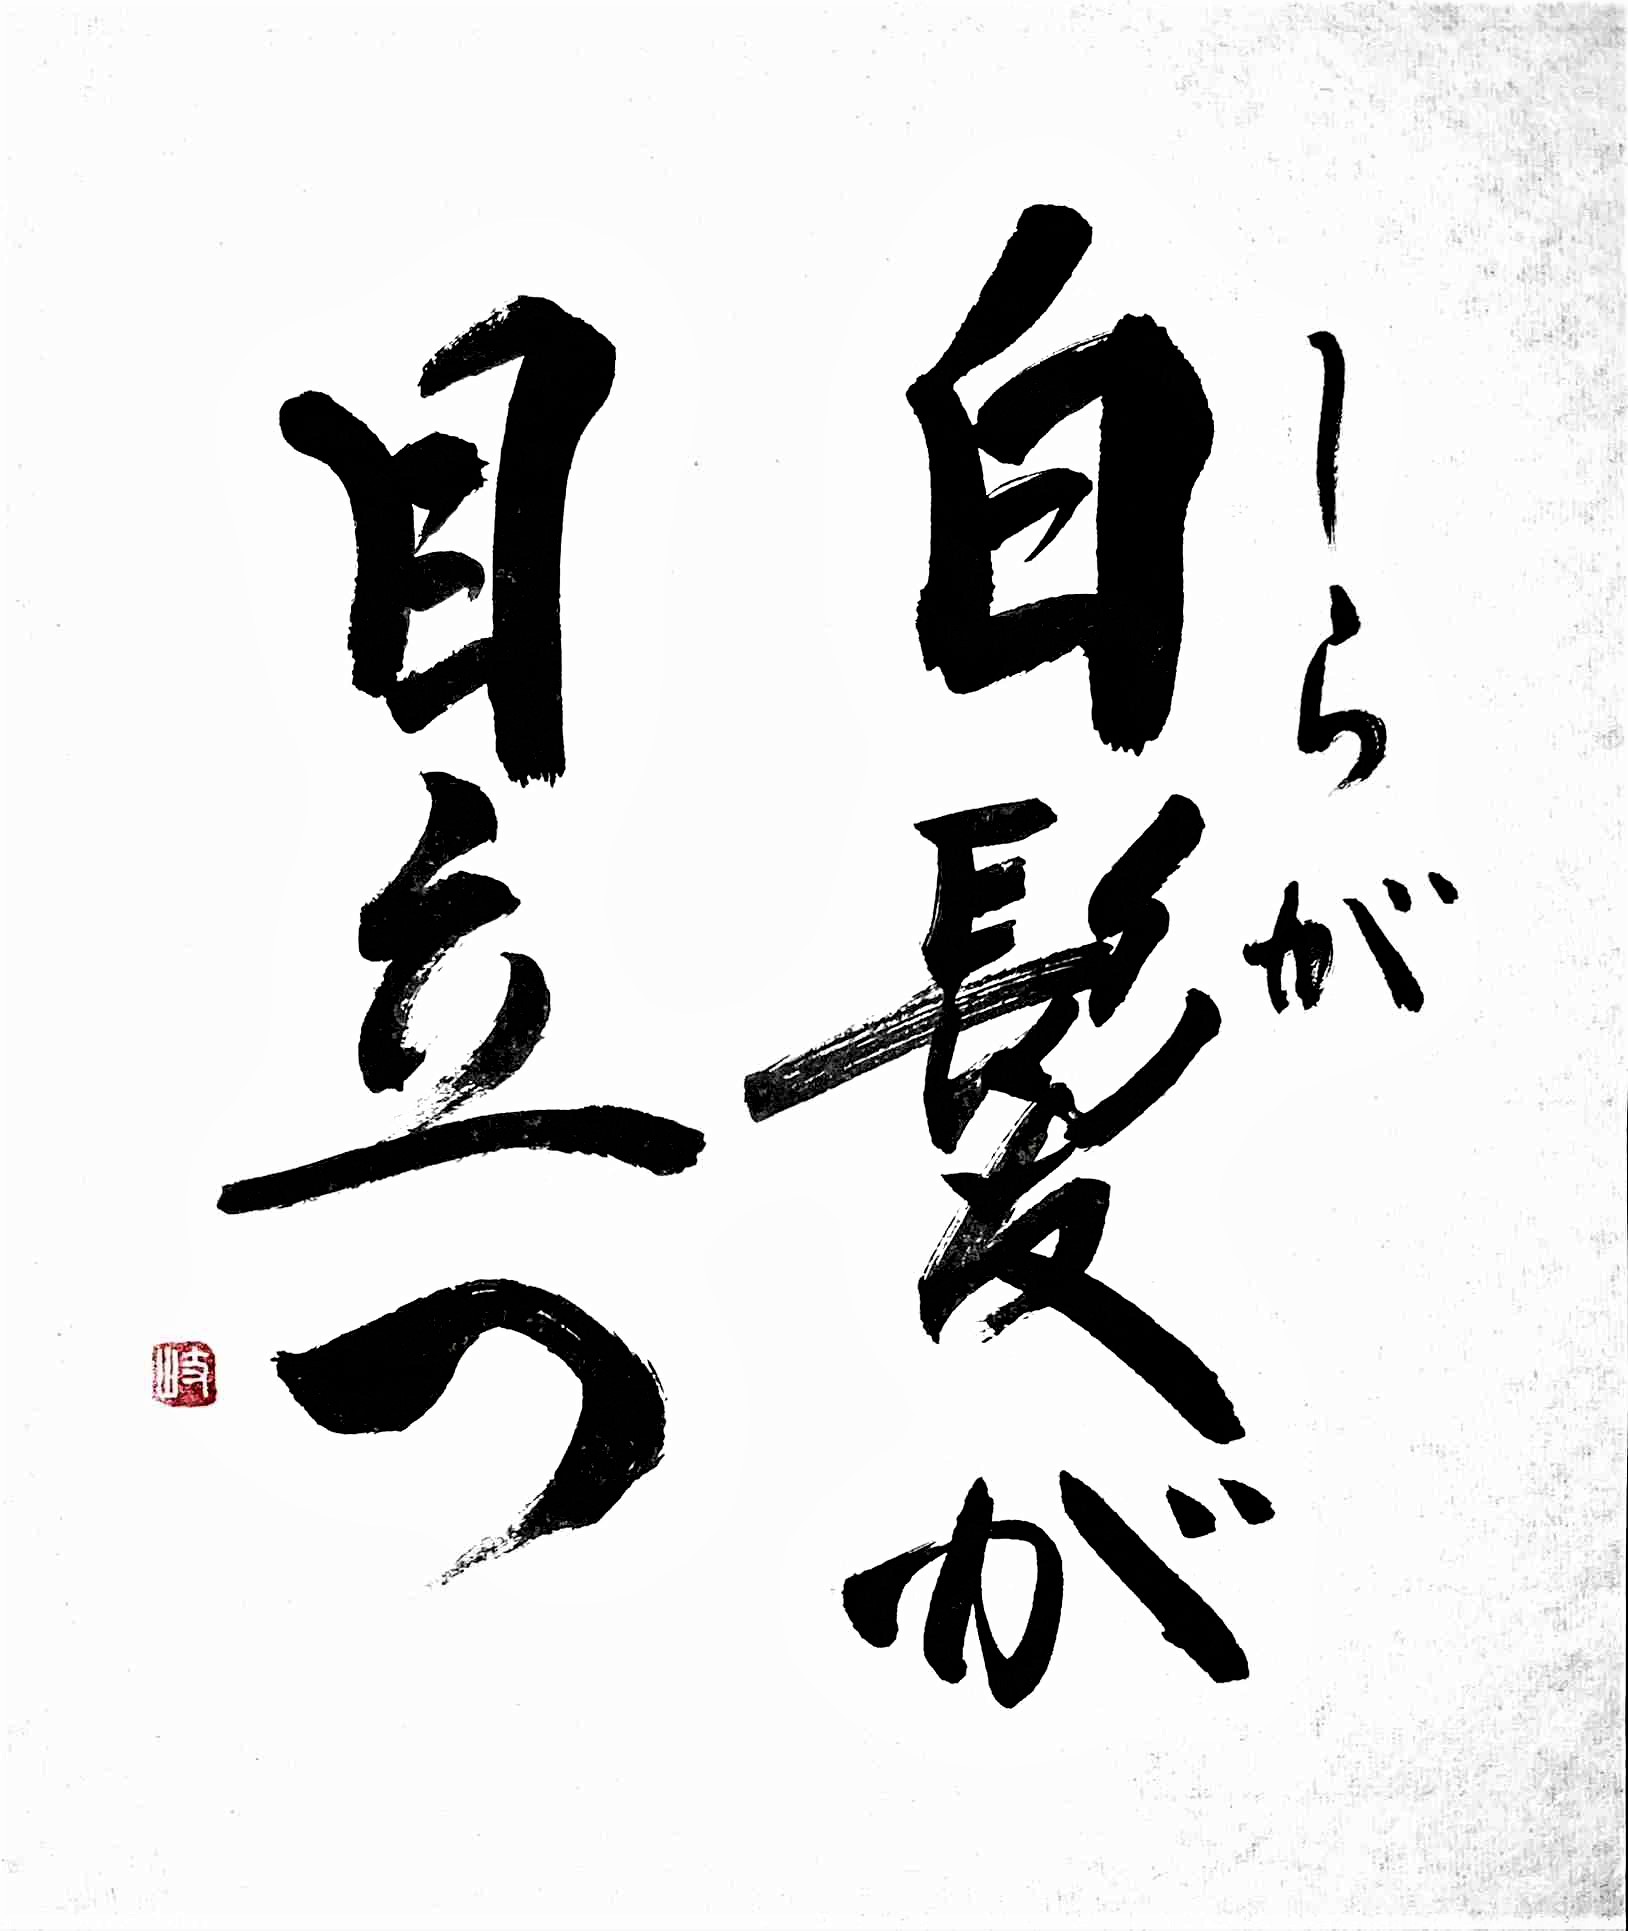 しらが
白髪が
目立つ
岐